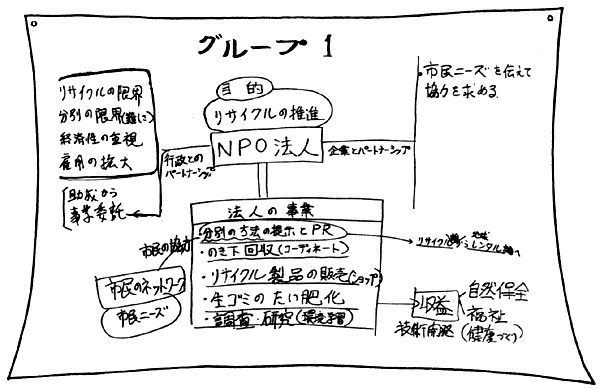 グループ 1
目的
リサイクルの推進
NPO法人
リサイクルの限界
分別の限界(難しい)
経済性の重視
雇用の拡大
行政との
パートナーシップ
助成から
事業委託
企業とパートナーシップ
・市民ニーズを伝えて
協力を求める
法人の事業
分別の方法の提示とPR
・のき下回収(コーディネート)
・リサイクル製品の販売(ショップ)
・生ゴミのたい肥化
・調査・研究(環境学習)
市民の協力
市民のネットワーク
市民ニーズ
収益
技術開発
自然保全
福祉
(健康づくり)